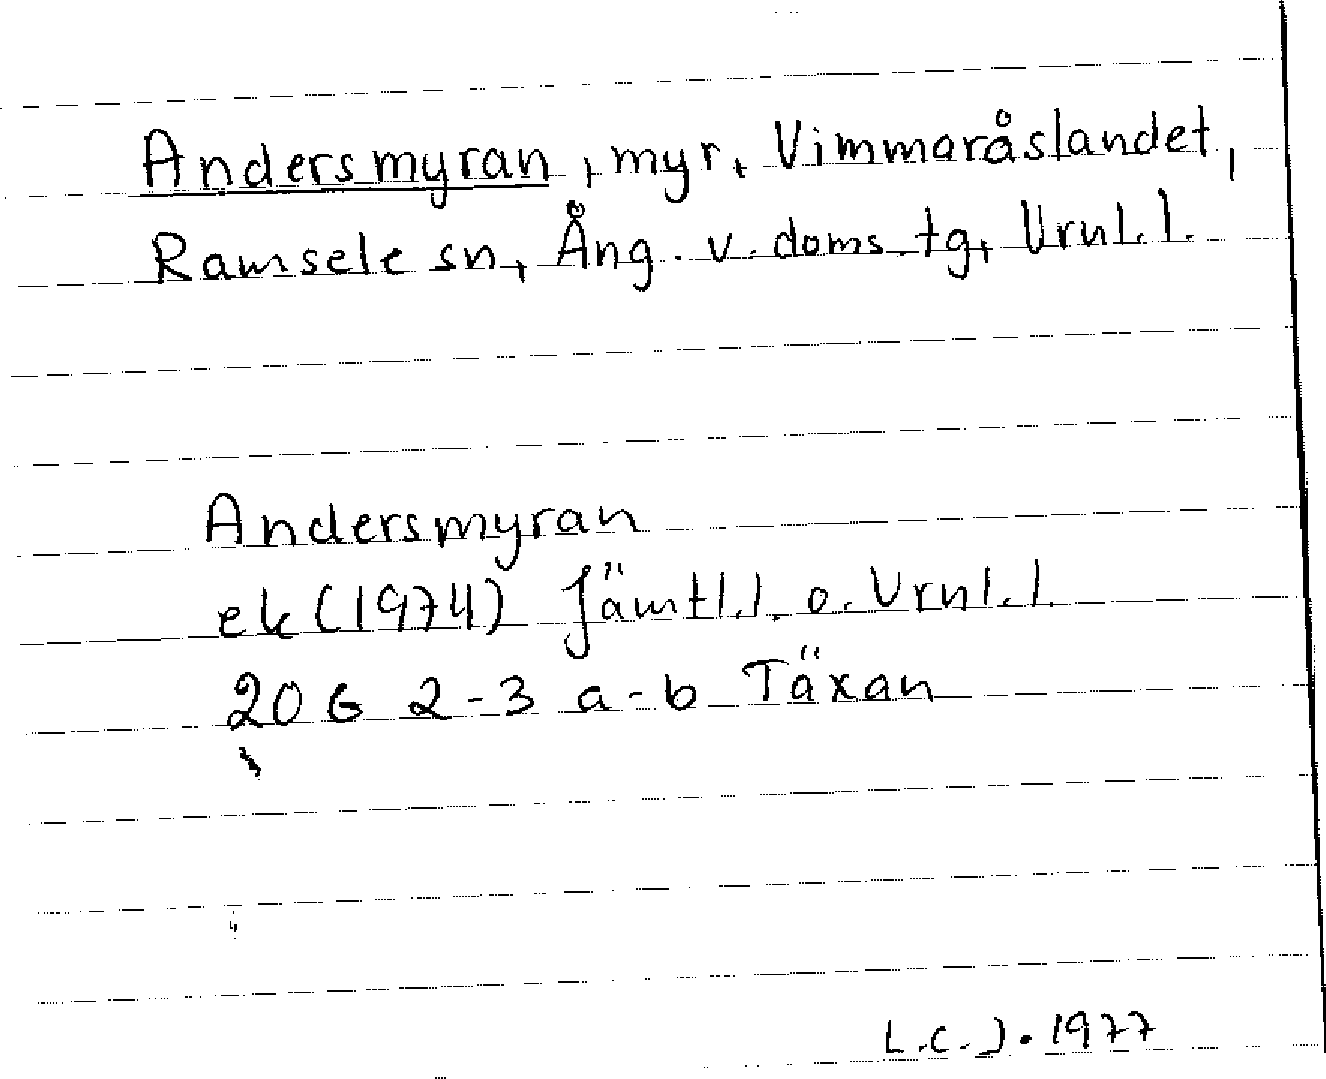 Andersmyran, myr, Vimmaråslandet,
Ramsele sn, Ång. v. doms. tg, Vrnl. l.
Andersmyran
ek (1974) Jämtl. l. o. Vrnl. l.
20 G 2-3 a-b Täxan
L.C.J. 1977